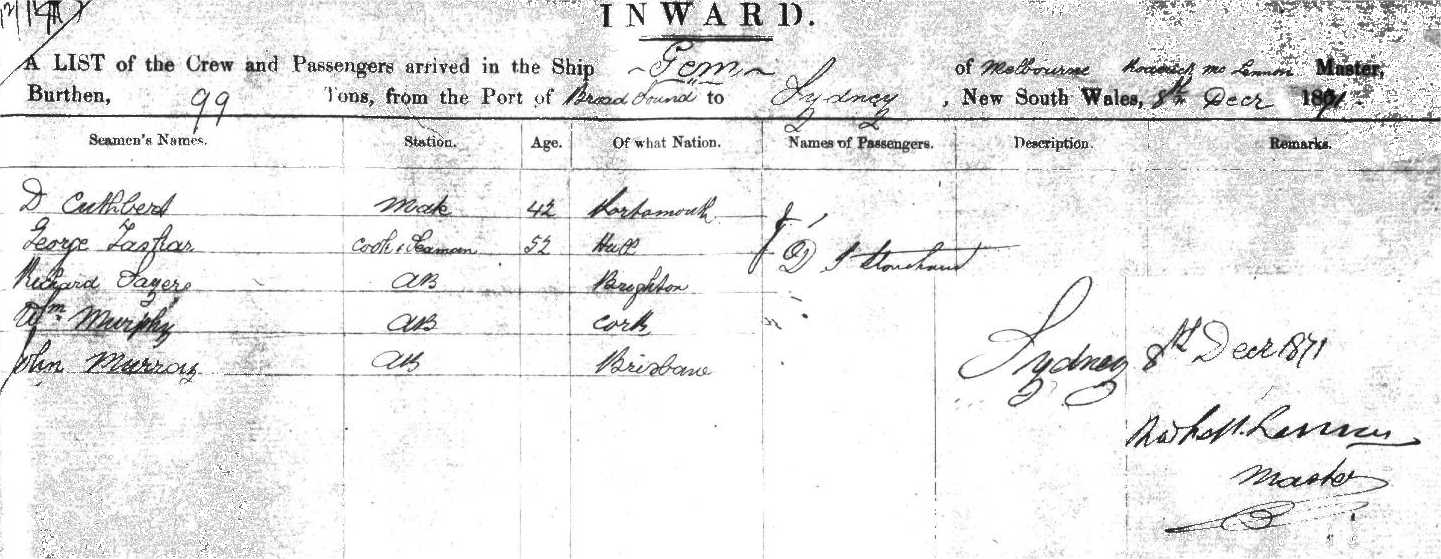 INWARD.
A LIST of the Crew and Passengers arrived in the Ship Gem of Melbourne Mc Lennon Master,
Burthen, 99 Tons, from the Port of Broad Sound to Sydney, New South Wales, 8th Decr 1871
Seamen's Names. Station. Age. Of what Nation. Names of Passengers. Description. Remarks.
D Cuthbert Mate 42 Portsmouth
George Cook & Seaman 52 Hull
D
Richard Sayers AB Brighton
Wm Murphy AB Cork
John Murray AB Brisbane
Sydney 8th Decr 1871
Master